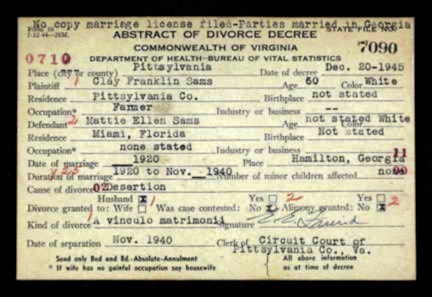 No copy marriage license filed-Parties married in Georgia
STATE FILE NO.
ABSTRACT OF DIVORCE DECREE
7090
COMMONWEALTH OF VIRGINIA
0710 DEPARTMENT OF HEALTH-BUREAU OF VITAL STATISTICS
Place (city or county) Pittsylvania Date of decree Dec. 20-1945
Plaintiff 1 Clay Franklin Sams Age 60 Color White
Residence Pittsylvania Co. Birthplace not stated
Occupation* Farmer Industry or business --
Defendant 2 Mattie Ellen Sams Age not stated Color White
Residence Miami, Florida Birthplace Not stated
Occupation* none stated Industry or business
Date of marriage 1920 Place Hamilton, Georgia 11
Duration of marriage 1920 to Nov. 1940 Number of minor children affected none 00
Cause of divorce 02 Desertion
Divorce granted to: Husband X Wife 1 Was case contested: Yes No X 2 Alimony granted: Yes No X 2
Kind of divorce A vinculo matrimonii Signature
Date of separation Nov. 1940 Clerk of Circuit Court of
Pittsylvania Co., Va.
Send only Bed and Bd.-Absolute-Annulment All above information
* If wife has no gainful occupation say housewife as at time of decree